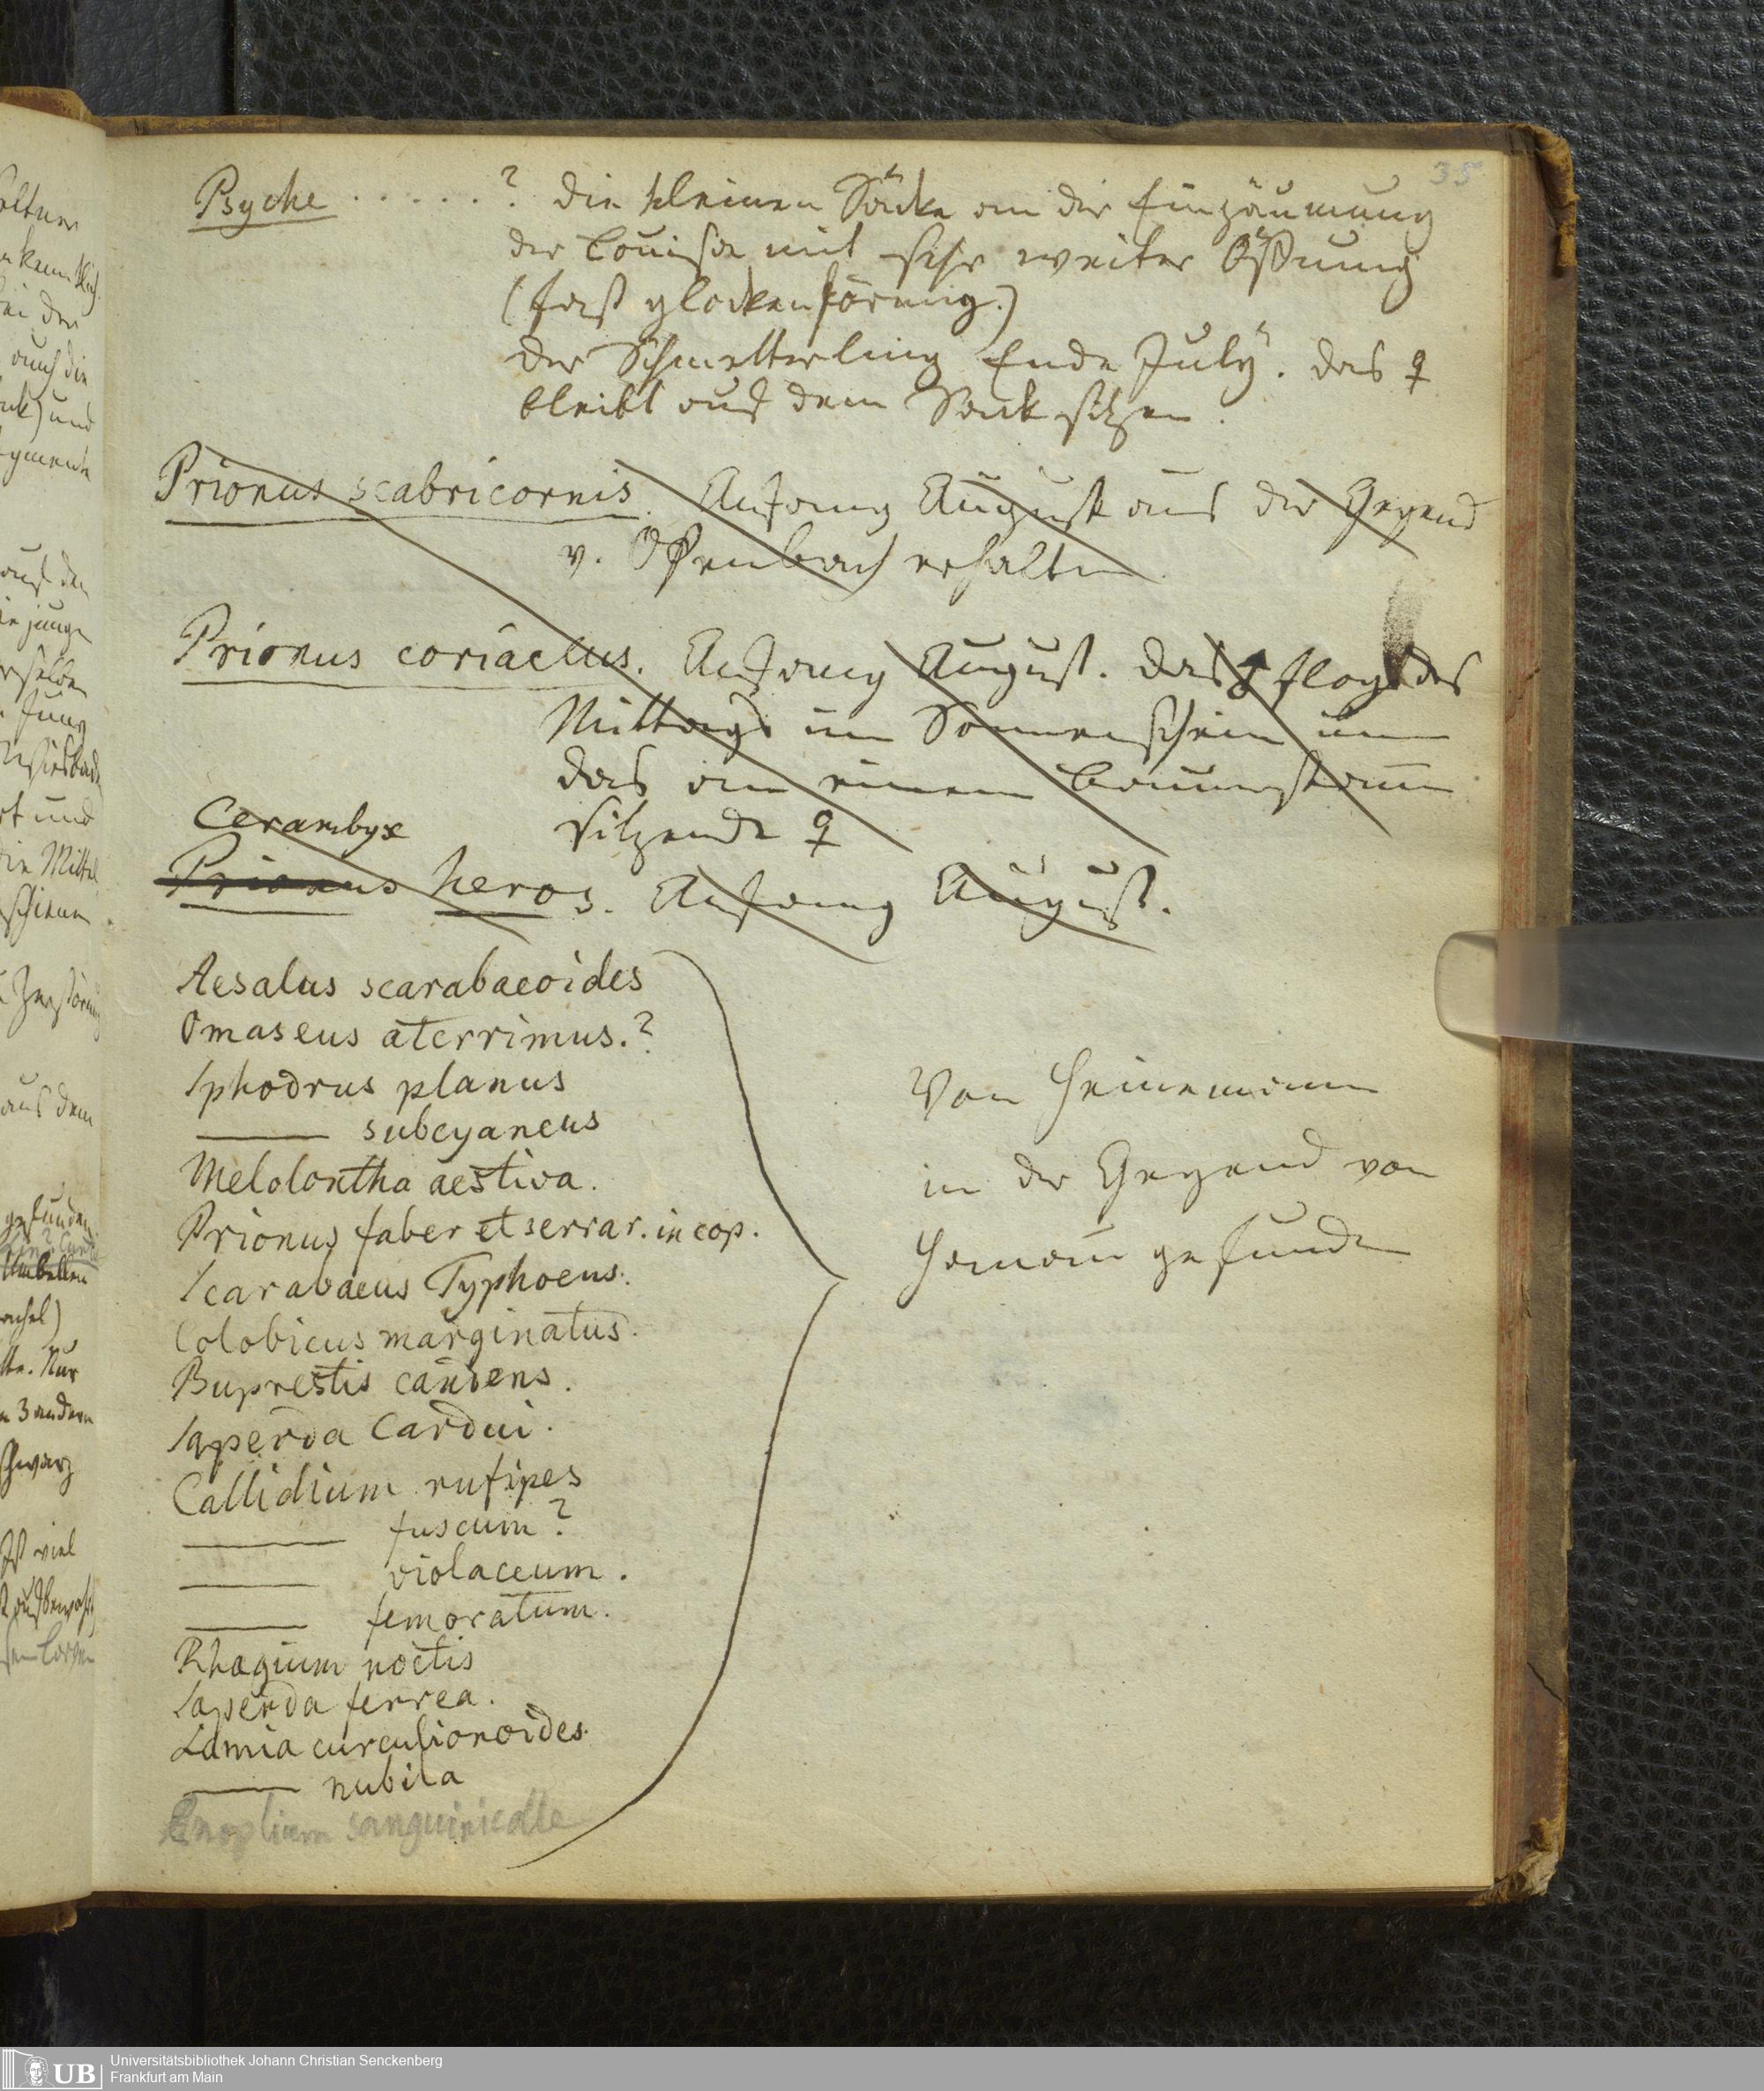 35
Psyche . . . . . . ? die kleinen Säcke an der Einzäunung
der Louisa mit sehr weiter Öffnung
(fast glockenförmig.)
der Schmetterling Ende July. das ♀
bleibt auf dem Sack sitzen.
Prionus scabricornis. Anfang August aus der Gegend
v. Offenbach erhalten.
Prionus coriaceus. Anfang August. das ♂ flog des
Mittags im Sonnenschein um
das an einem Baumstamm
sitzende ♀
Cerambyx
Prionus heros. Anfang August.
Aesalus scarabaeoides
Omaseus aterrimus.?
Sphodrus planus
——— subcyaneus
Melolontha aestiva.
Prionus faber et serrar. in cop.
Scarabaeus Typhoeus.
Colobicus marginatus.
Buprestis candens.
Saperda Cardui.
Callidium rufipes
——— fuscum?
——— violaceum.
——— femoratum.
Rhagium noctis
Saperda ferrea.
Lamia curculionoides.
——— nubila
Enoplium sanguinicolle
Von Heinemann
in der Gegend von
Hanau gefunden
UB
Universitätsbibliothek Johann Christian Senckenberg
Frankfurt am Main